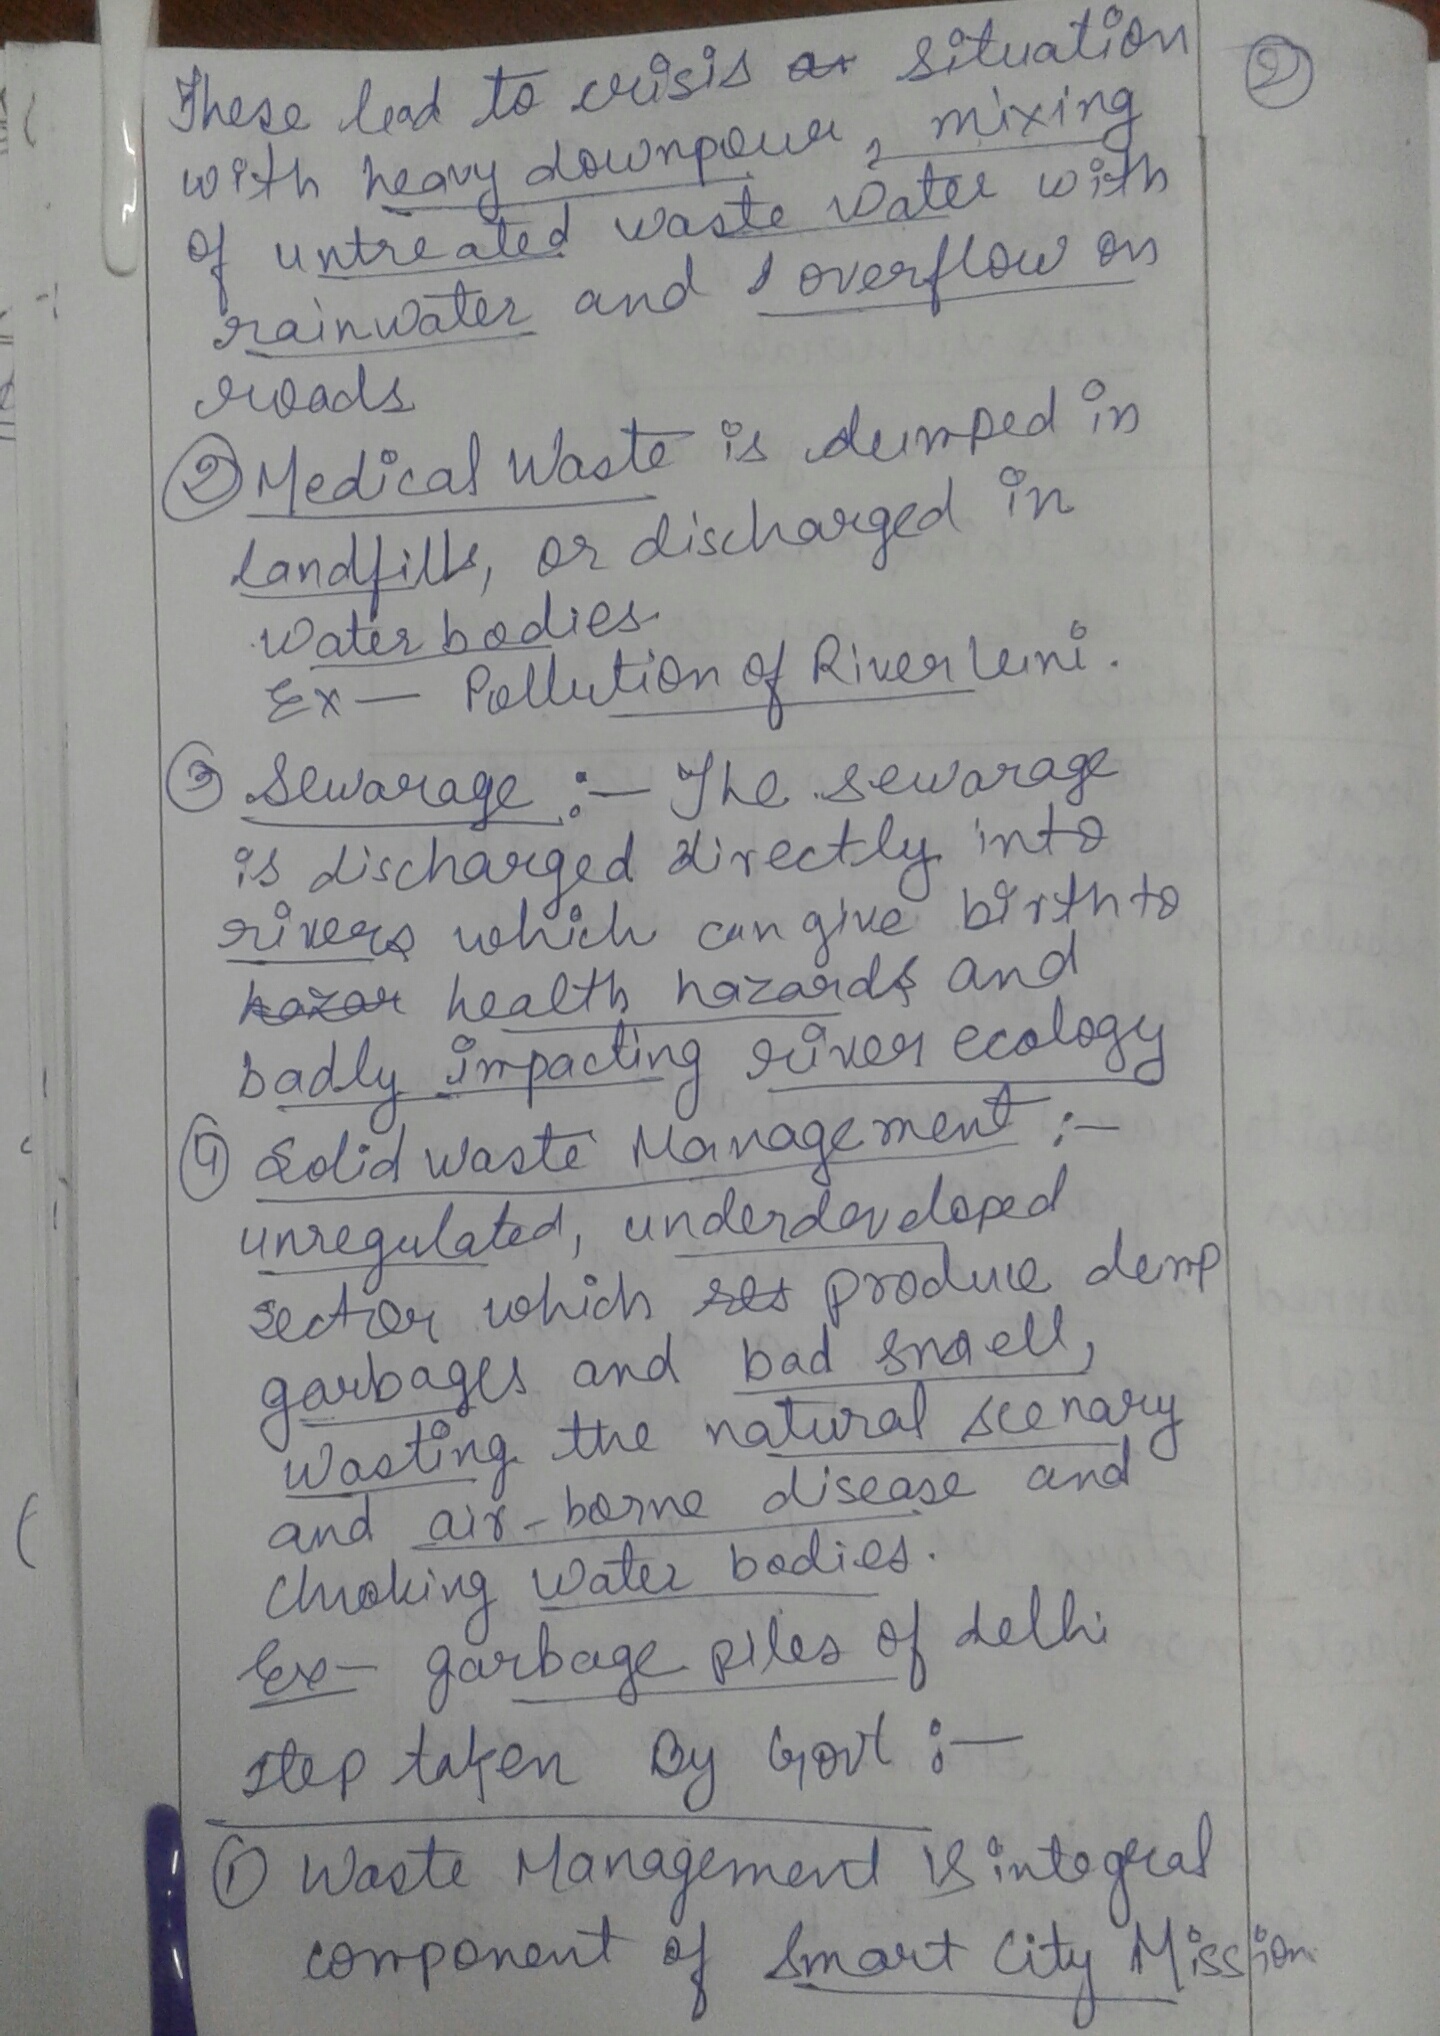 ②
These lead to crisis situation
with heavy downpour, mixing
of untreated waste water with
rainwater and overflow on
roads
② Medical Waste is dumped in
landfills, or discharged in
water bodies.
Ex — Pollution of River Luni.
③ Sewarage :— The sewarage
is discharged directly into
rivers which can give birth to
hazar health hazards and
badly impacting river ecology
④ Solid waste Management :—
unregulated, underdeveloped
sector which produce dump
garbages and bad smell,
Wasting the natural scenary
and air-borne disease and
Choking water bodies.
Ex— garbage piles of delhi
step taken By Govt :—
① Waste Management is integral
component of Smart City Mission